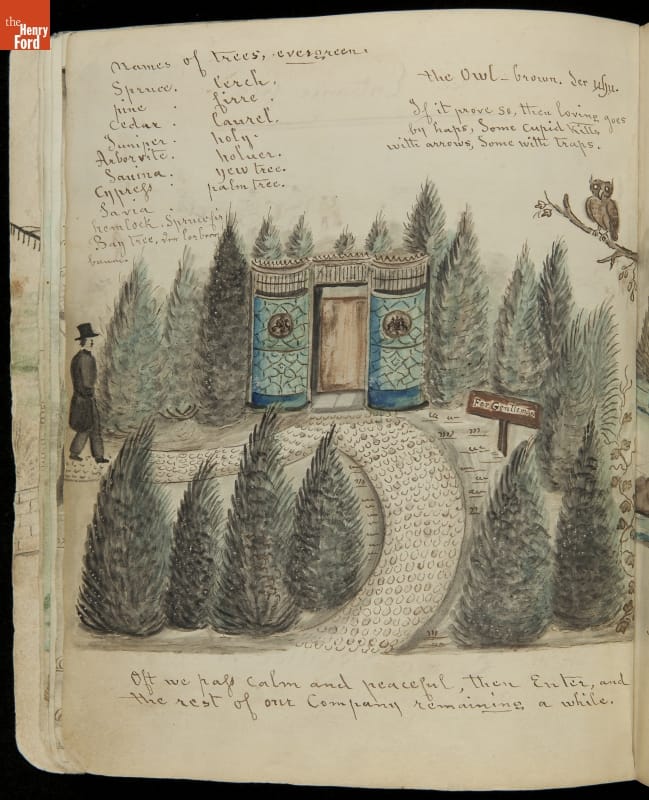 the
Henry
Ford
Names of trees, evergreen.
Spruce. Lerch.
pine . firre.
Cedar . Laurel.
Juniper. holy.
Arborvite. holuer.
Savina. yew tree.
Cypress . palm tree.
Savia .
hemlock, Spruce fir
Bay tree,
the Owl – brown. Der Uhu.
If it prove so, then loving goes
by haps, Some Cupid Kills
with arrows, Some with traps.
For Gentlemen
Oft we pass calm and peaceful, then Enter, and
the rest of our Company remaining a while.